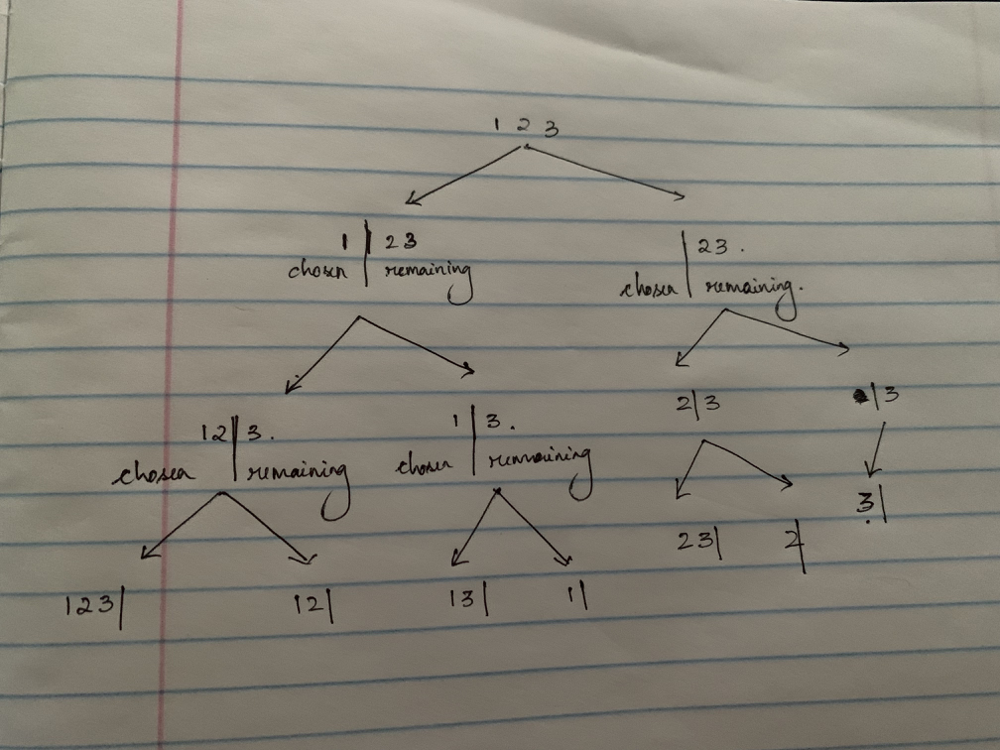 1 2 3
1 | 23 | 23 .
chosen | remaining chosen | remaining.
2|3 |3
12 | 3 . 1 | 3 .
chosen | remaining chosen | remaining
3|
23| 2|
123| 12| 13| 1|